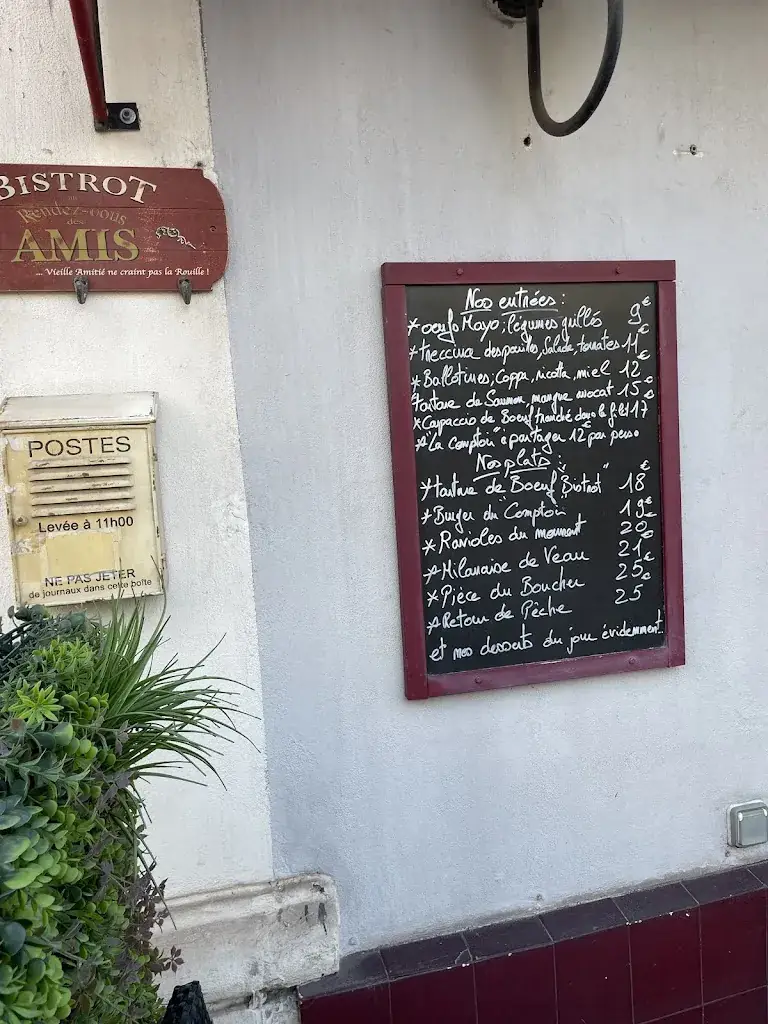 BISTROT
au
Rendez-vous
des
AMIS
... Vieille Amitié ne craint pas la Rouille !
POSTES
Levée à 11h00
NE PAS JETER
de journaux dans cette boîte
Nos entrées :
* oeufs Mayo, légumes grillés 9€
* treccina des pouilles, Salade, tomates 11€
* Ballotines, Coppa, ricotta, miel 12€
tartare de Saumon mangue avocat 15€
* Carpaccio de Boeuf tranché dans le filet 17€
* "La Comptoir" à partager 12€ par pers.
Nos plats :
* tartare de Boeuf "Bistrot" 18€
* Burger du Comptoir 19€
* Ravioles du moment 20€
* Milanaise de Veau 21€
* Pièce du Boucher 25€
* Retour de Pêche 25
et nos desserts du jour évidemment...